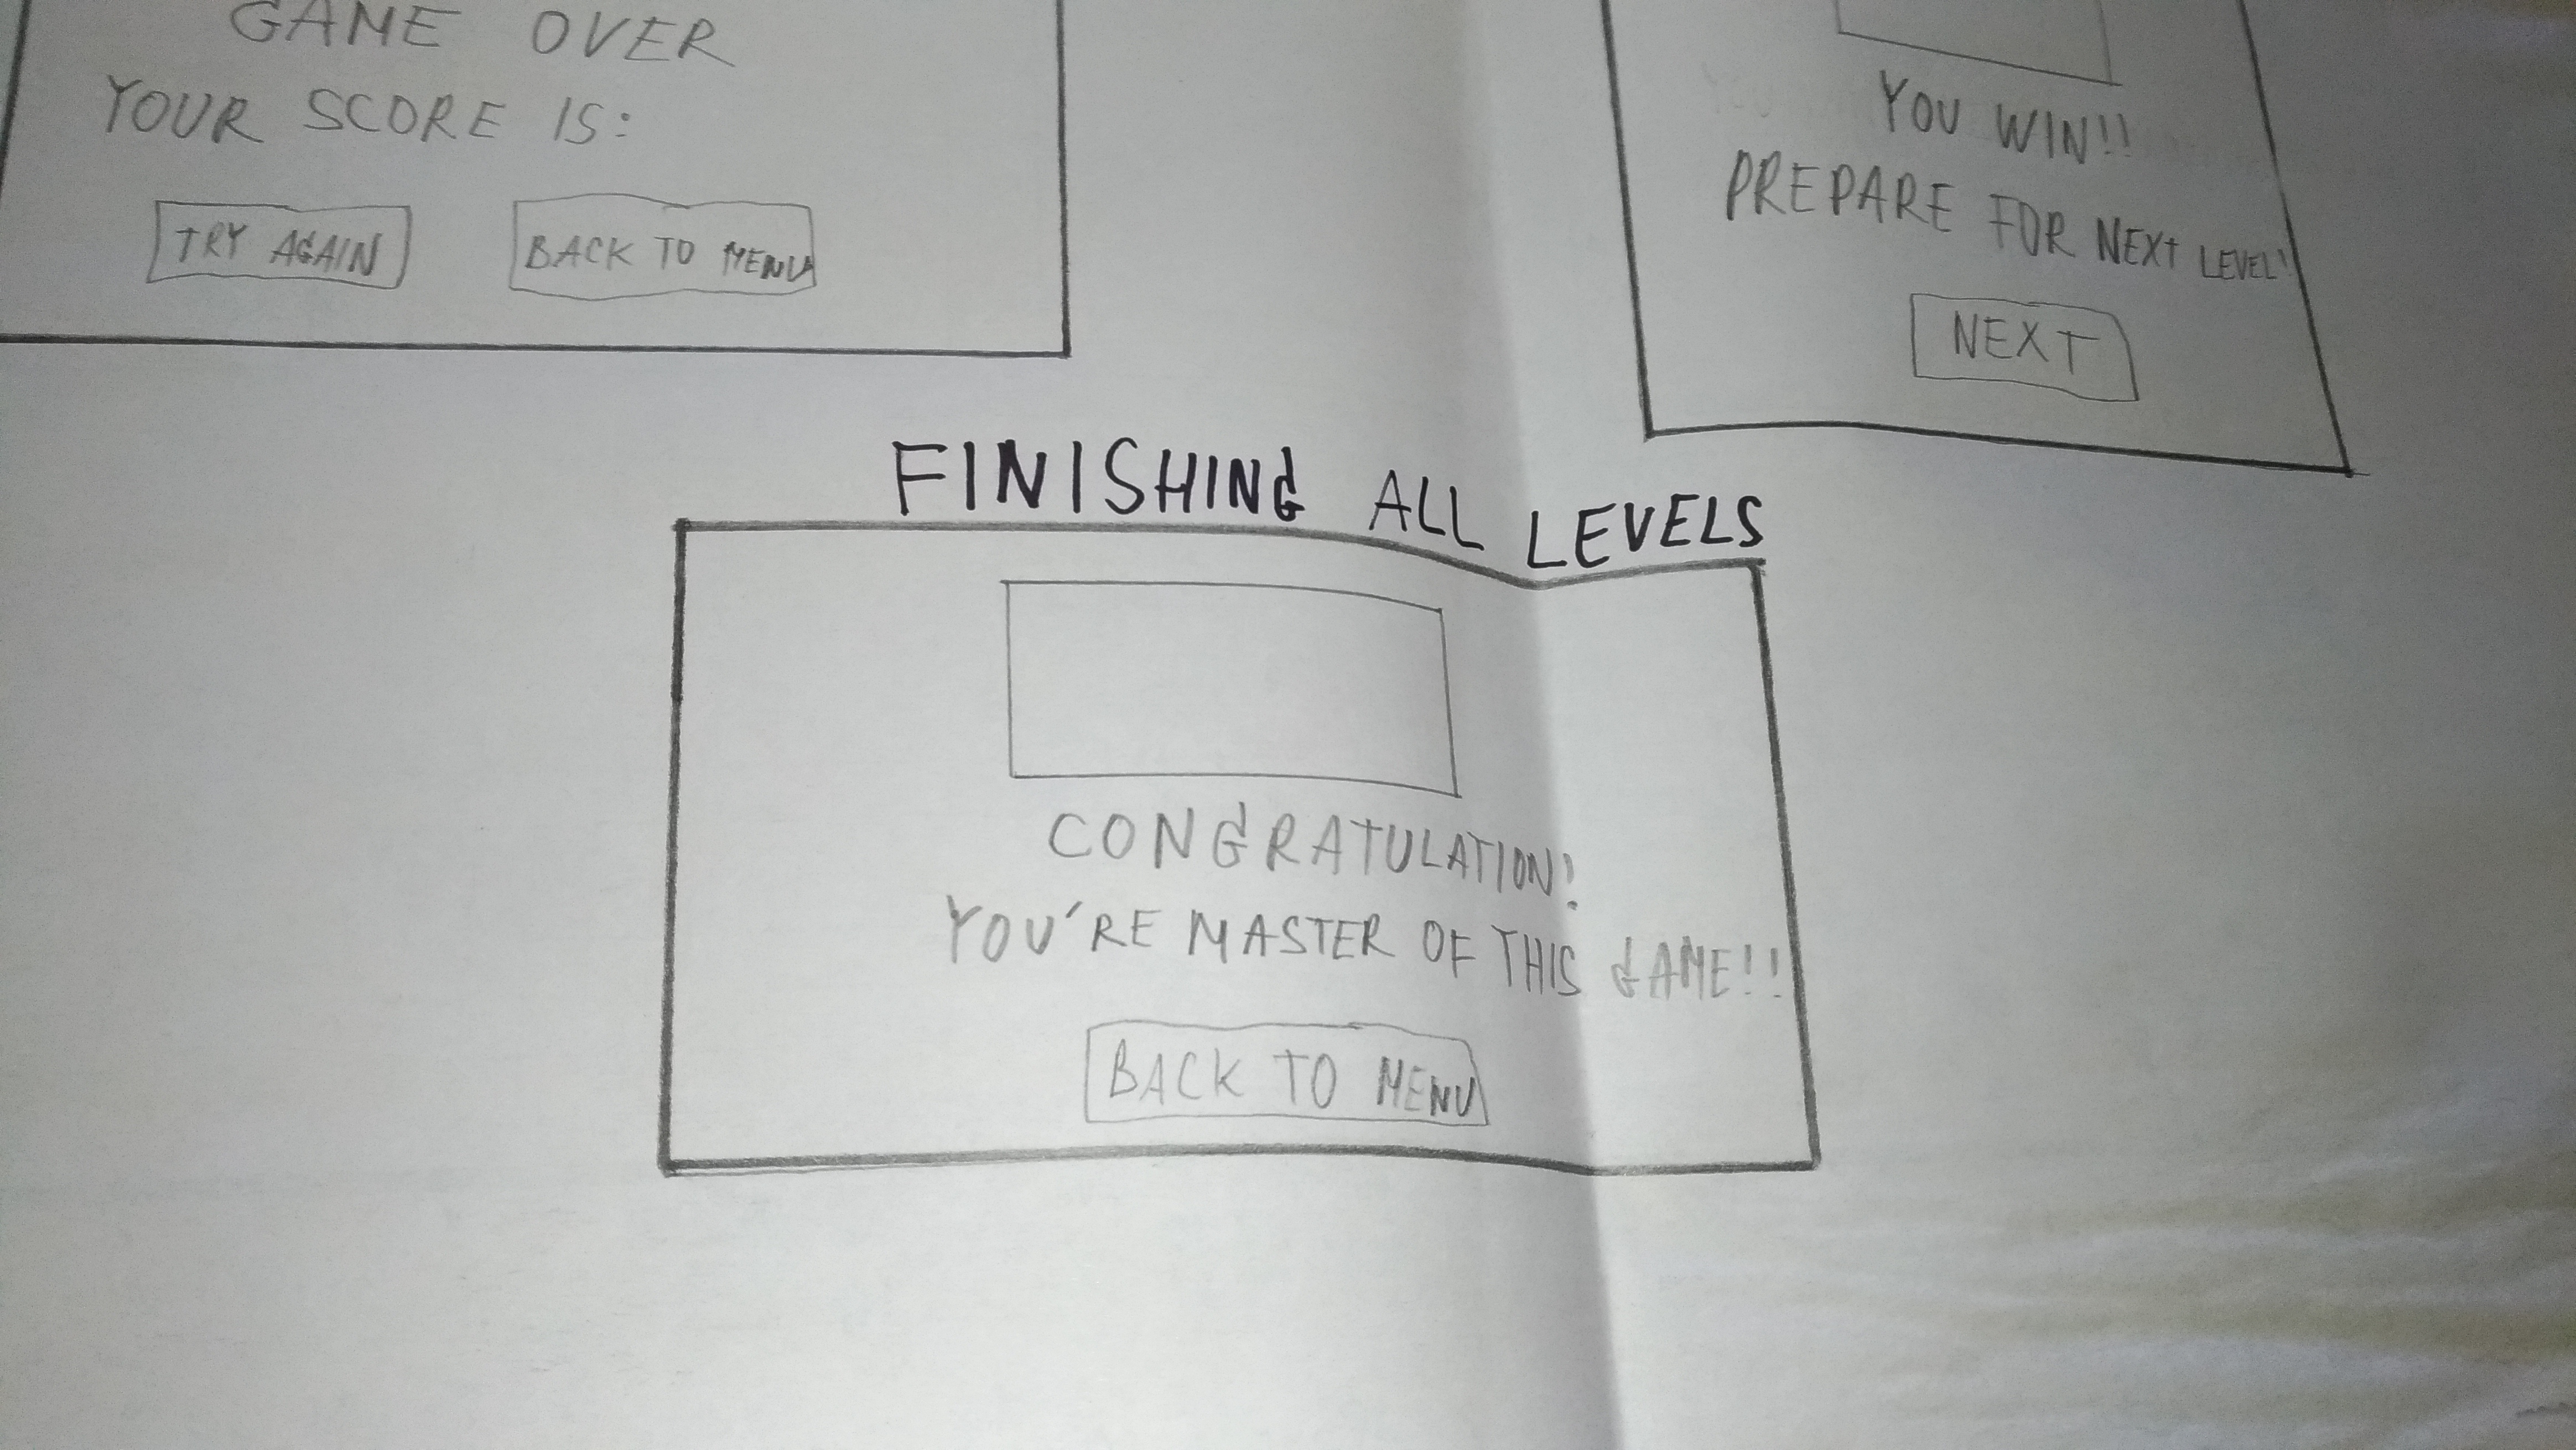 GAME OVER
YOUR SCORE IS:
TRY AGAIN
BACK TO MENU
YOU WIN!!
PREPARE FOR NEXT LEVEL!
NEXT
FINISHING ALL LEVELS
CONGRATULATION!
YOU'RE MASTER OF THIS GAME!!
BACK TO MENU